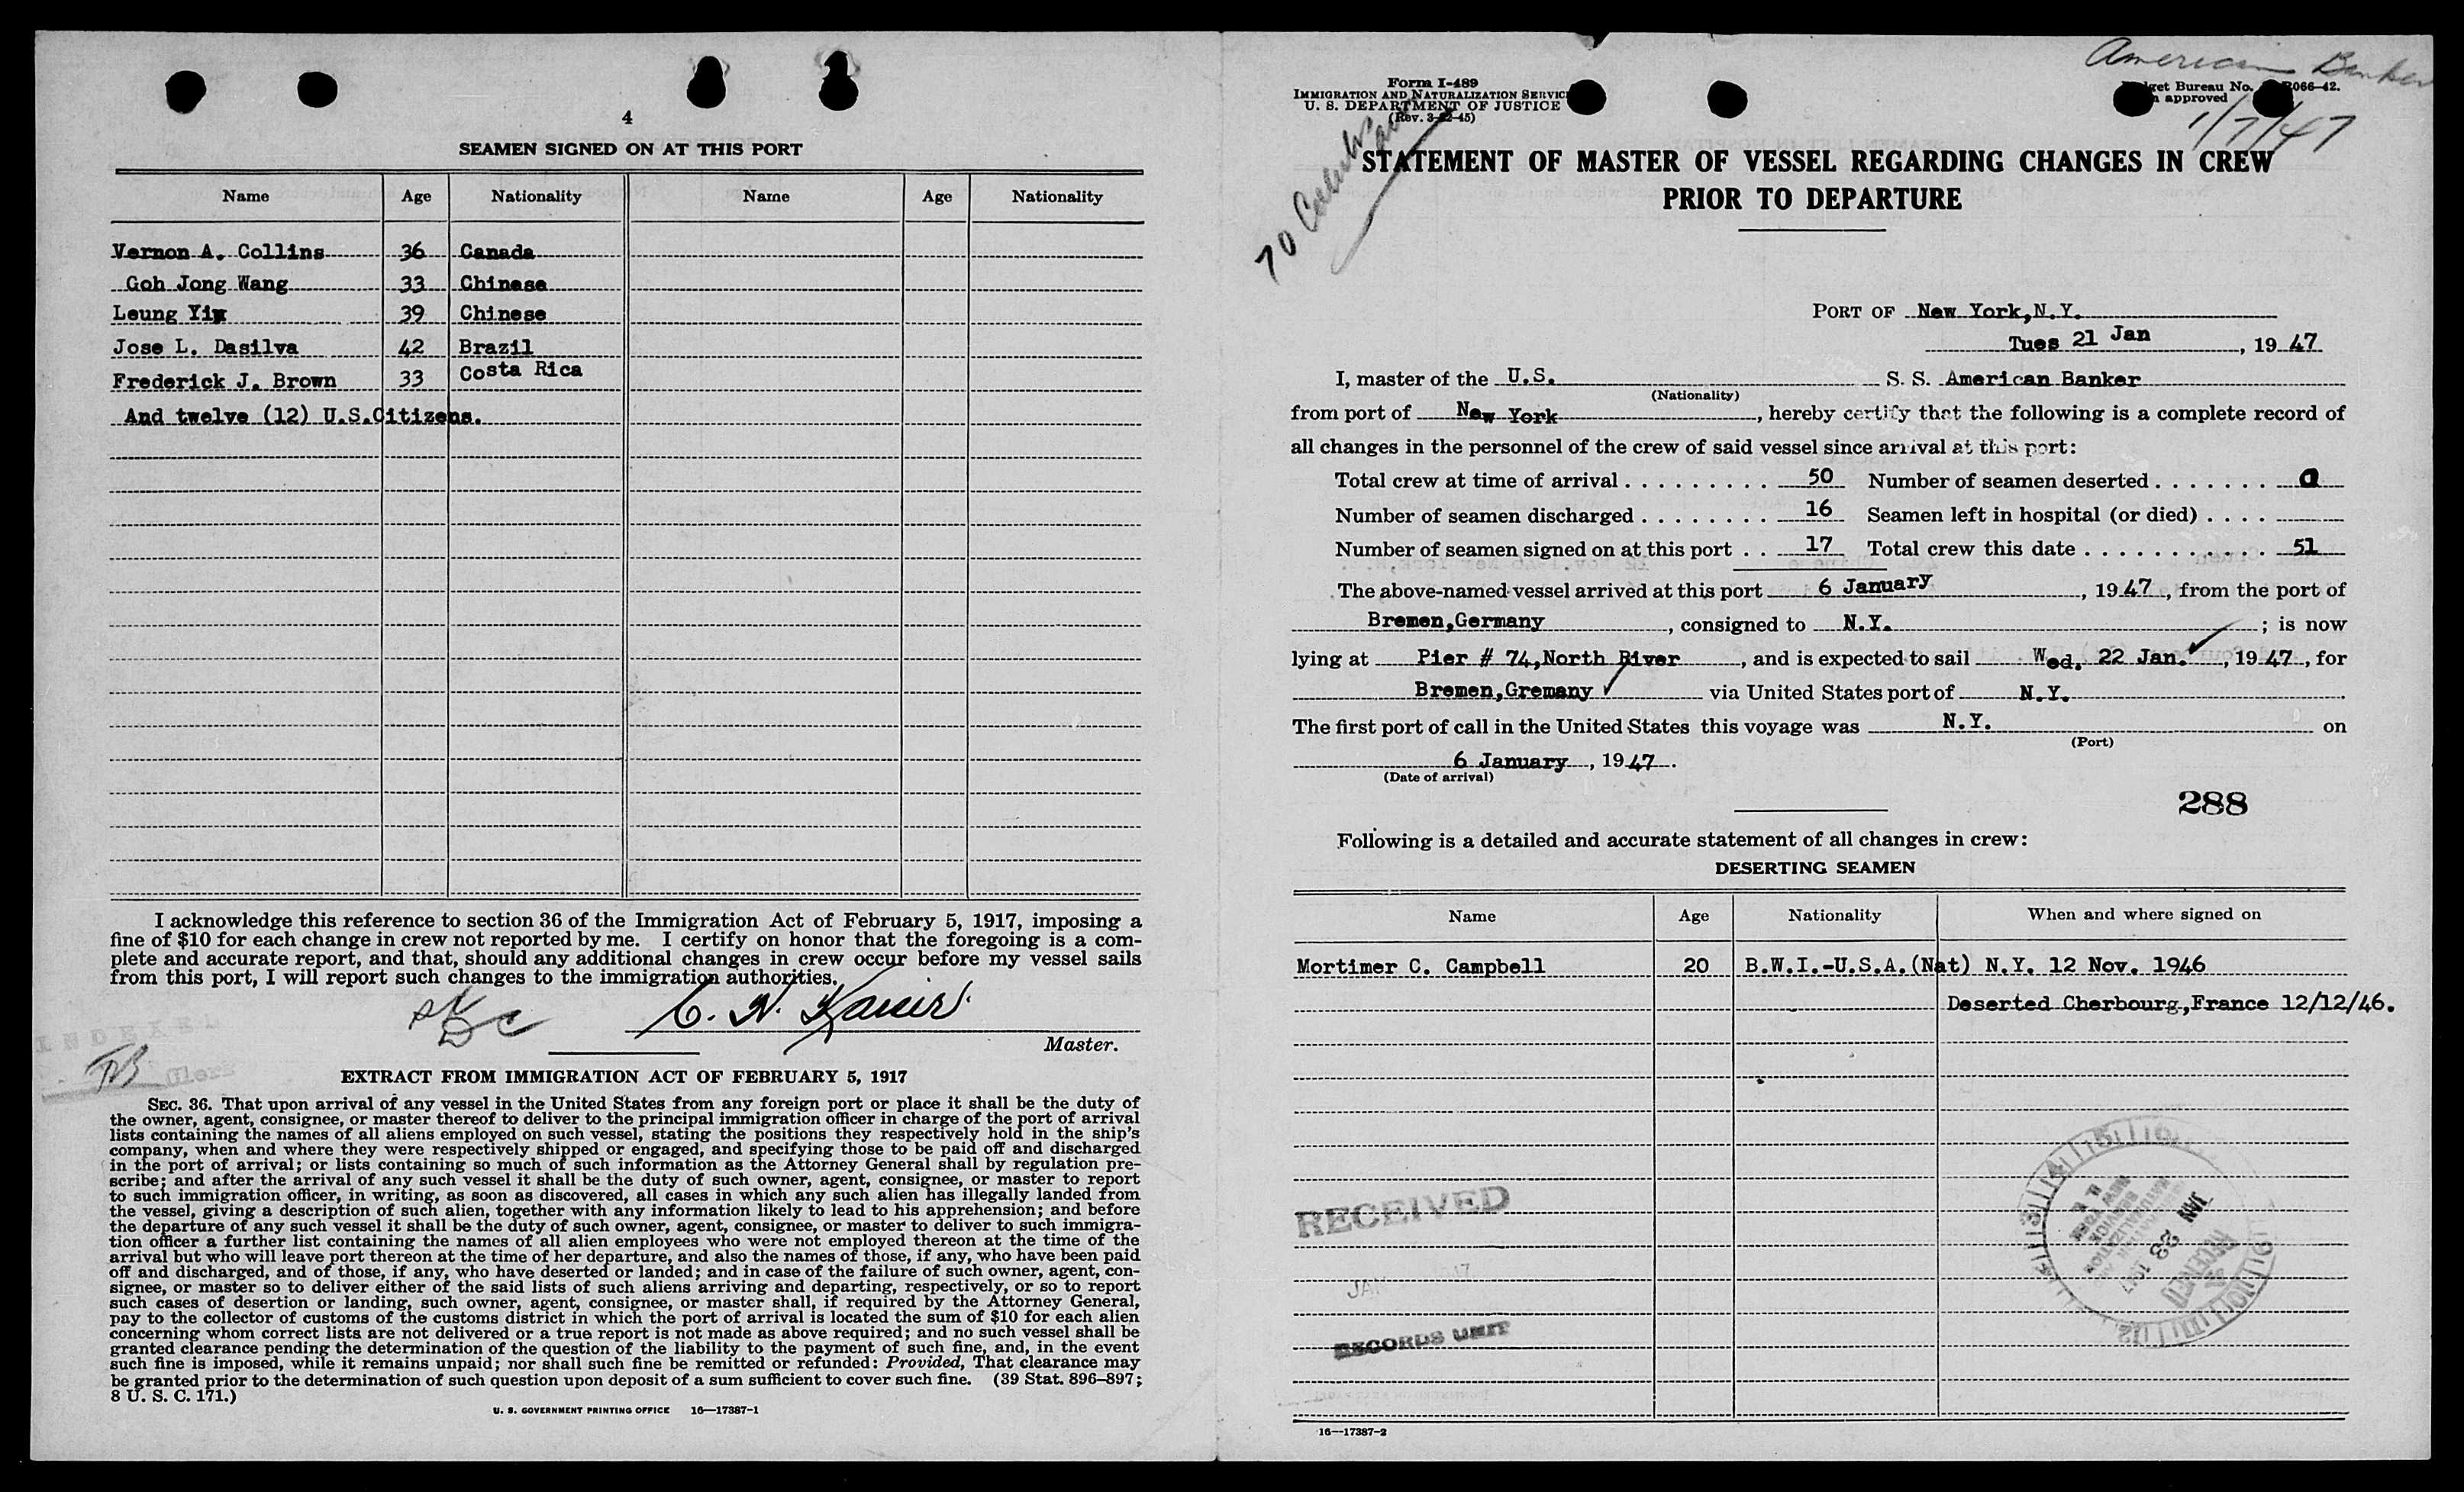 4
SEAMEN SIGNED ON AT THIS PORT
Name Age Nationality Name Age Nationality
Vernon A. Collins 36 Canada
Goh Jong Wang 33 Chinese
Leung Yim 39 Chinese
Jose L. Dasilva 42 Brazil
Frederick J. Brown 33 Costa Rica
And twelve (12) U.S.Citizens.
I acknowledge this reference to section 36 of the Immigration Act of February 5, 1917, imposing a
fine of $10 for each change in crew not reported by me. I certify on honor that the foregoing is a com-
plete and accurate report, and that, should any additional changes in crew occur before my vessel sails
from this port, I will report such changes to the immigration authorities.
C. N.
Master.
INDEXED
Clerk
EXTRACT FROM IMMIGRATION ACT OF FEBRUARY 5, 1917
SEC. 36. That upon arrival of any vessel in the United States from any foreign port or place it shall be the duty of
the owner, agent, consignee, or master thereof to deliver to the principal immigration officer in charge of the port of arrival
lists containing the names of all aliens employed on such vessel, stating the positions they respectively hold in the ship's
company, when and where they were respectively shipped or engaged, and specifying those to be paid off and discharged
in the port of arrival; or lists containing so much of such information as the Attorney General shall by regulation pre-
scribe; and after the arrival of any such vessel it shall be the duty of such owner, agent, consignee, or master to report
to such immigration officer, in writing, as soon as discovered, all cases in which any such alien has illegally landed from
the vessel, giving a description of such alien, together with any information likely to lead to his apprehension; and before
the departure of any such vessel it shall be the duty of such owner, agent, consignee, or master to deliver to such immigra-
tion officer a further list containing the names of all alien employees who were not employed thereon at the time of the
arrival but who will leave port thereon at the time of her departure, and also the names of those, if any, who have been paid
off and discharged, and of those, if any, who have deserted or landed; and in case of the failure of such owner, agent, con-
signee, or master so to deliver either of the said lists of such aliens arriving and departing, respectively, or so to report
such cases of desertion or landing, such owner, agent, consignee, or master shall, if required by the Attorney General,
pay to the collector of customs of the customs district in which the port of arrival is located the sum of $10 for each alien
concerning whom correct lists are not delivered or a true report is not made as above required; and no such vessel shall be
granted clearance pending the determination of the question of the liability to the payment of such fine, and, in the event
such fine is imposed, while it remains unpaid; nor shall such fine be remitted or refunded: Provided, That clearance may
be granted prior to the determination of such question upon deposit of a sum sufficient to cover such fine. (39 Stat. 896–897;
8 U. S. C. 171.)
U. S. GOVERNMENT PRINTING OFFICE 16—17387-1
American Banker
1/7/47
Form I-489
IMMIGRATION AND NATURALIZATION SERVICE
U. S. DEPARTMENT OF JUSTICE
(Rev. 3-22-45)
Bureau No. R066-42.
approved
70
STATEMENT OF MASTER OF VESSEL REGARDING CHANGES IN CREW
PRIOR TO DEPARTURE
PORT OF New York,N.Y.
Tues 21 Jan, 1947
I, master of the U.S. S. S. American Banker
(Nationality)
from port of New York, hereby certify that the following is a complete record of
all changes in the personnel of the crew of said vessel since arrival at this port:
Total crew at time of arrival 50 Number of seamen deserted
Number of seamen discharged 16 Seamen left in hospital (or died)
Number of seamen signed on at this port 17 Total crew this date 51
The above-named vessel arrived at this port 6 January, 1947, from the port of
Bremen,Germany, consigned to N.Y.; is now
lying at Pier # 74,North River, and is expected to sail Wed. 22 Jan., 1947, for
Bremen,Gremany via United States port of N.Y.
The first port of call in the United States this voyage was N.Y. on
(Port)
6 January, 1947.
(Date of arrival)
288
Following is a detailed and accurate statement of all changes in crew:
DESERTING SEAMEN
Name Age Nationality When and where signed on
Mortimer C. Campbell 20 B.W.I.-U.S.A.(Nat) N.Y. 12 Nov. 1946
Deserted Cherbourg,France 12/12/46.
RECEIVED
RECORDS UNIT
JAN 23 1947
RECEIVED
16—17387-2